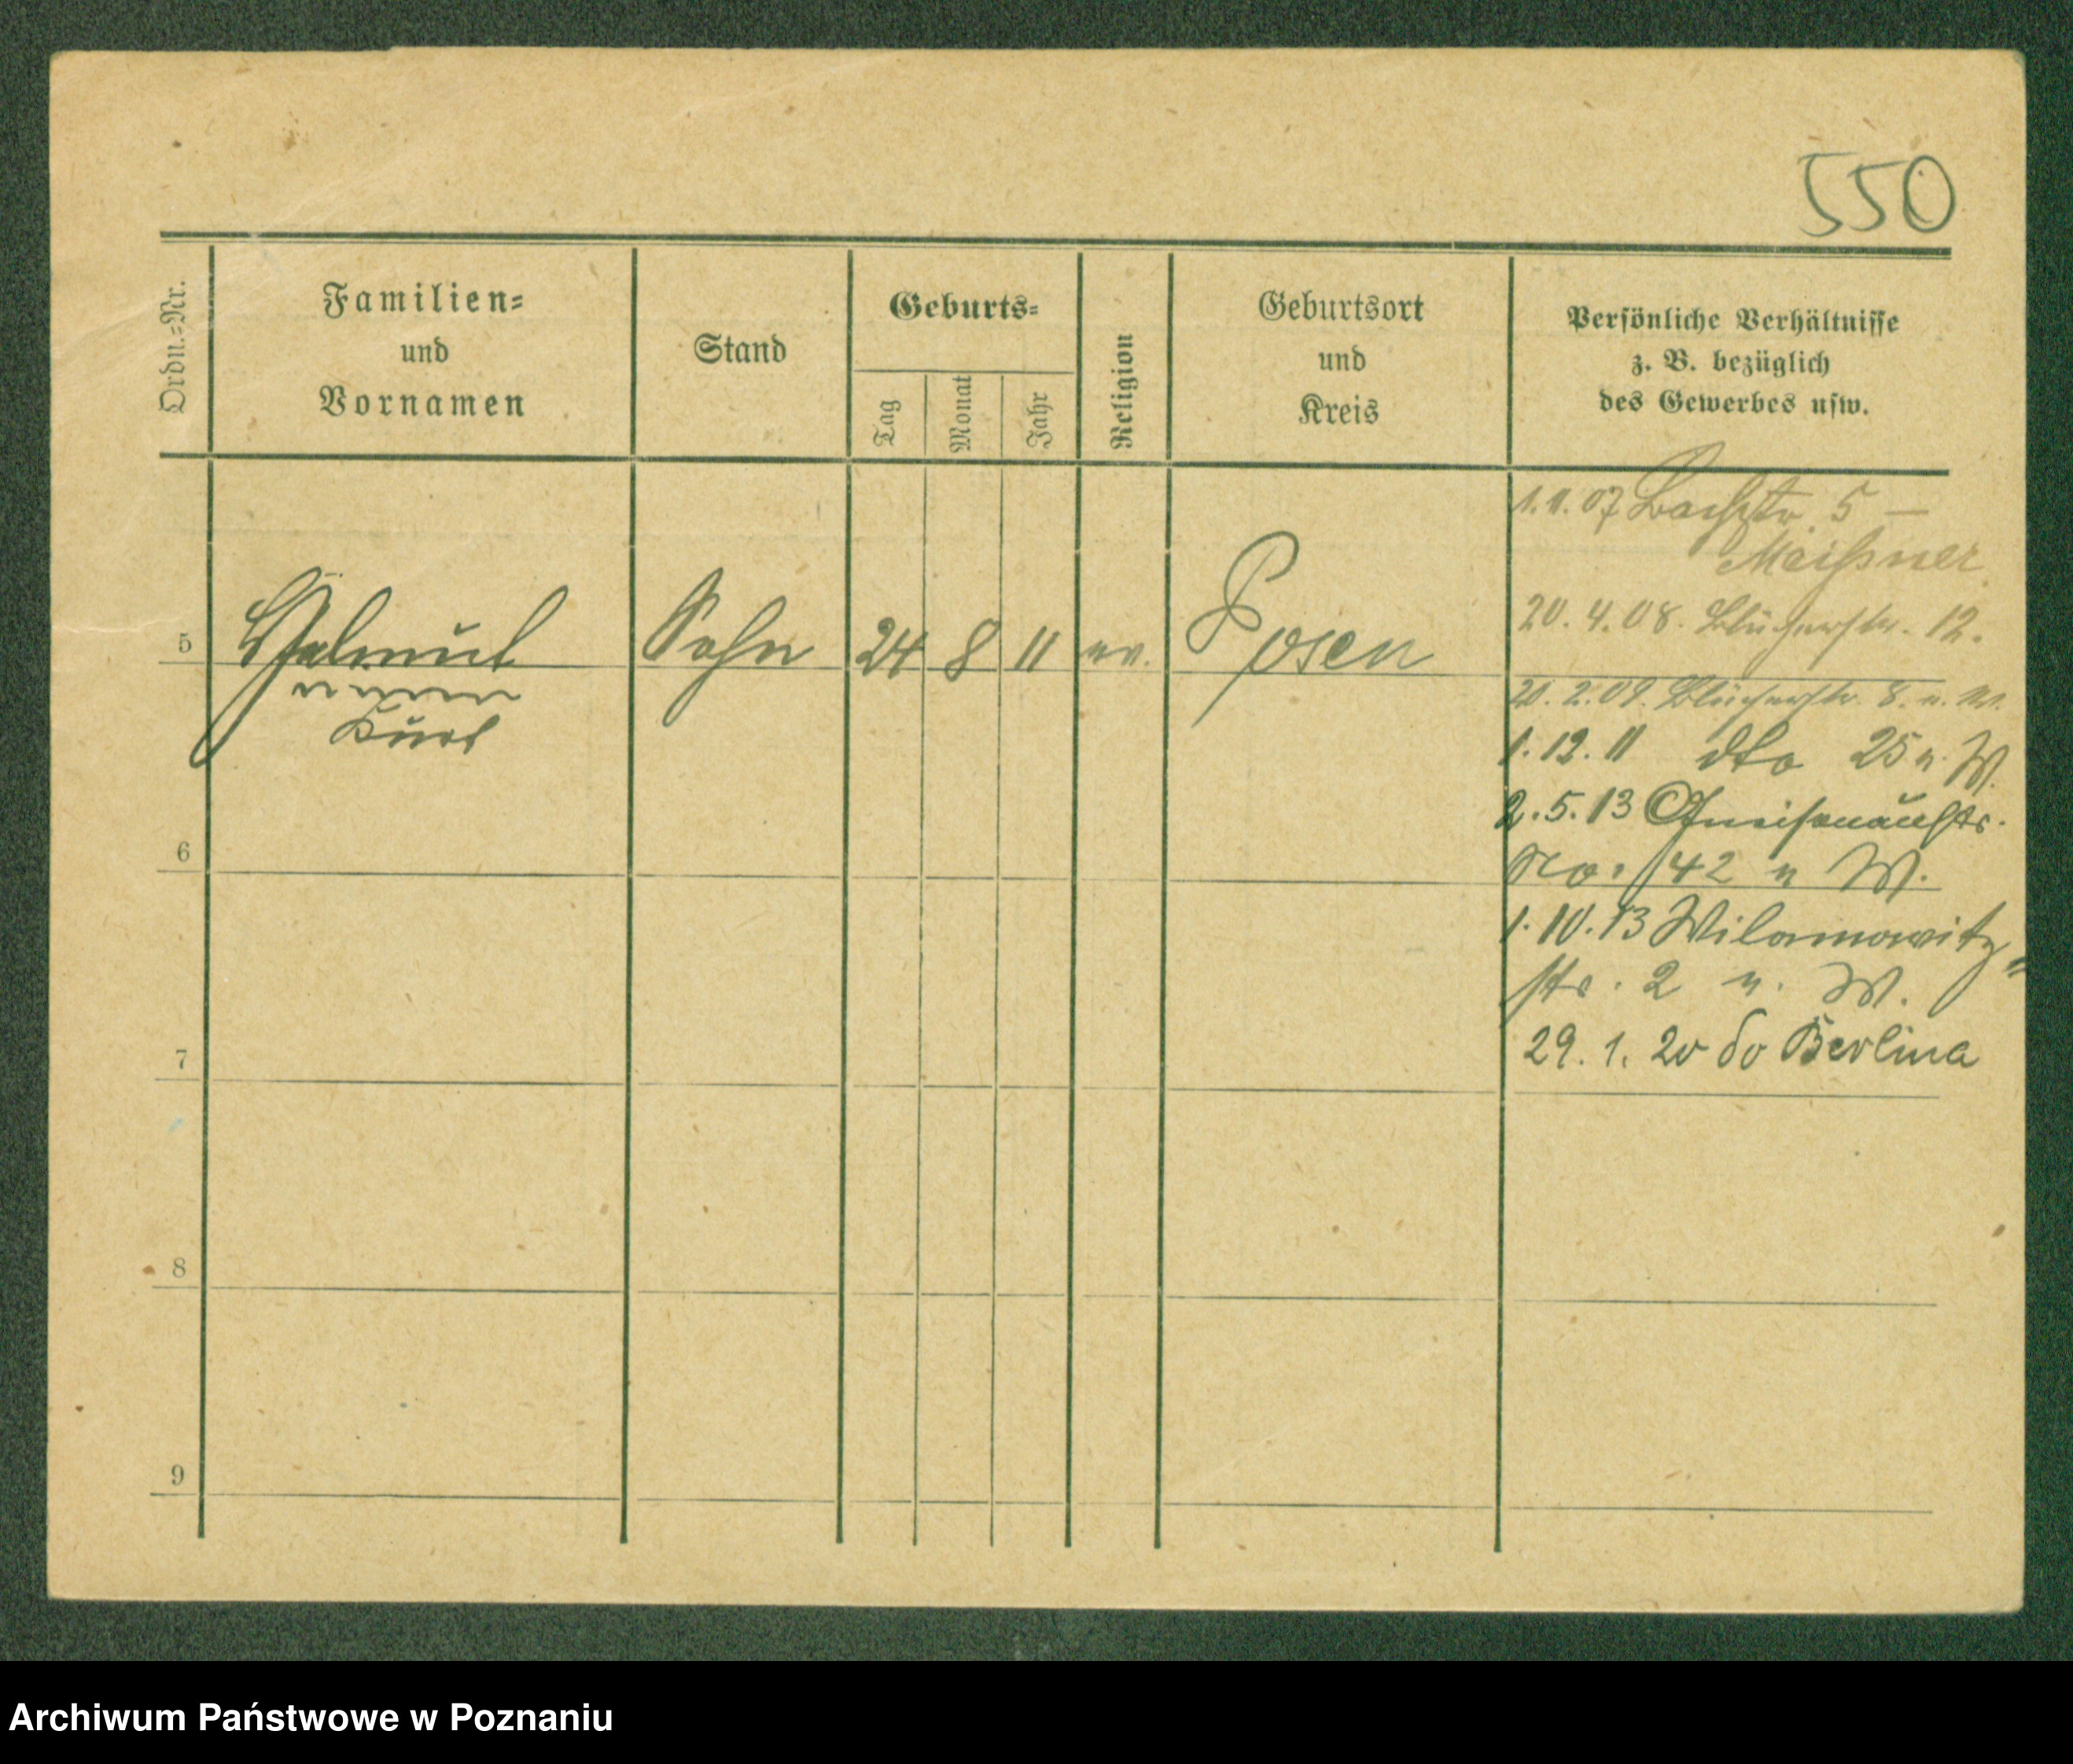 550
Ordn.=Nr.
Familien=
und
Vornamen
Stand
Geburts=
Tag
Monat
Jahr
Religion
Geburtsort
und
Kreis
Persönliche Verhältnisse
z. B. bezüglich
des Gewerbes usw.
1.11.07 Bachstr. 5 –
Meißner
20. 4. 08. Blücherstr. 12.
5 Helmut Sohn 24 8 11 ev. Posen
Kurt
20. 2. 09. Blücherstr. 8. u. W.
1. 12. 11 dto 25 u. W.
2. 5. 13 Gneisenaustr.
No. 42 u W.
6
1. 10. 13 Wilamowitz=
str. 2 u. W.
29. 1. 20 do Berlina
7
8
9
Archiwum Państwowe w Poznaniu